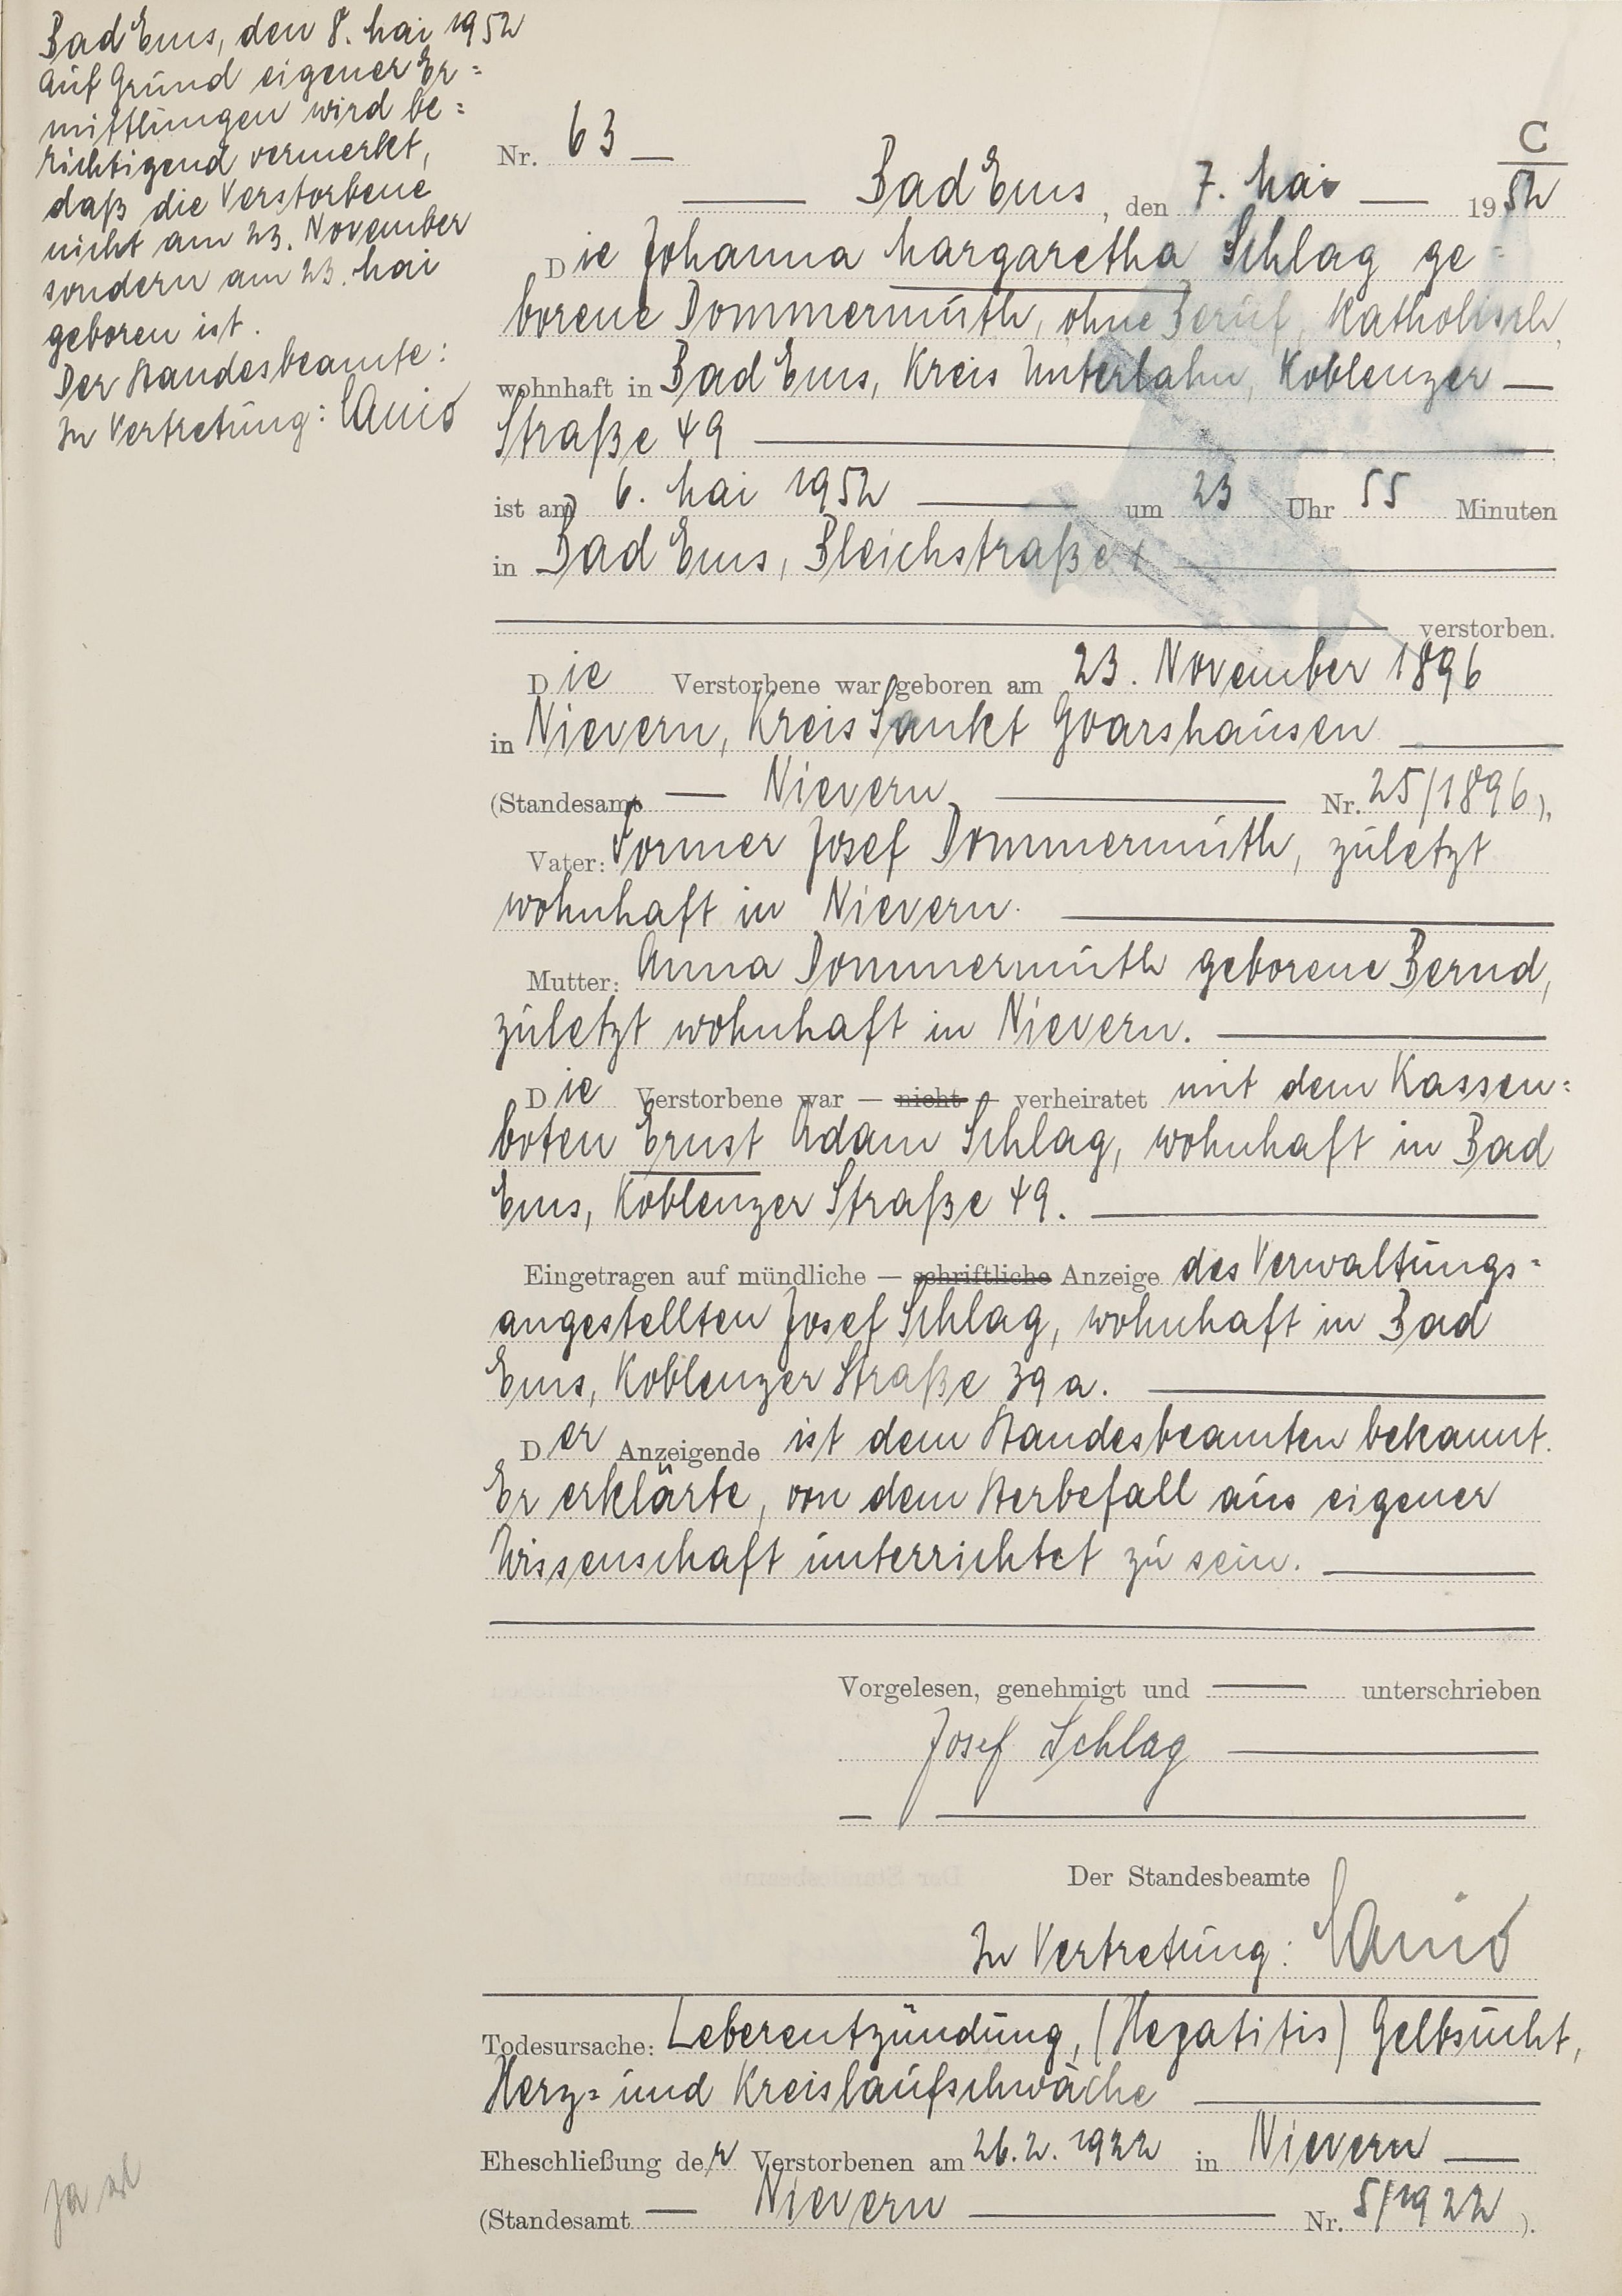 Bad Ems, den 8. Mai 1952
Auf Grund eigener Er=
mittlungen wird be=
richtigend vermerkt,
daß die Verstorbene
nicht am 23. November
sondern am 23. Mai
geboren ist.
Der Standesbeamte:
In Vertretung:
C
Nr. 63
Bad Ems, den 7. Mai 1952
Die Johanna Margaretha Schlag ge=
borene Dommermuth, ohne Beruf, katholisch,
wohnhaft in Bad Ems, Kreis Unterlahn, Koblenzer
Straße 49
ist am 6. Mai 1952 um 23 Uhr 55 Minuten
in Bad Ems, Bleichstraße
verstorben.
Die Verstorbene war geboren am 23. November 1896
in Nievern, Kreis Sankt Goarshausen
(Standesamt Nievern Nr. 25/1896),
Vater: Former Josef Dommermuth, zuletzt
wohnhaft in Nievern.
Mutter: Anna Dommermuth geborene Bernd,
zuletzt wohnhaft in Nievern.
Die Verstorbene war — nicht — verheiratet mit dem Kassen=
boten Ernst Adam Schlag, wohnhaft in Bad
Ems, Koblenzer Straße 49.
Eingetragen auf mündliche — schriftliche Anzeige des Verwaltungs=
angestellten Josef Schlag, wohnhaft in Bad
Ems, Koblenzer Straße 39a.
Der Anzeigende ist dem Standesbeamten bekannt.
Er erklärte, von dem Sterbefall aus eigener
Wissenschaft unterrichtet zu sein.
Vorgelesen, genehmigt und unterschrieben
Josef Schlag
Der Standesbeamte
In Vertretung:
Todesursache: Leberentzündung, (Hepatitis) Gelbsucht,
Herz= und Kreislaufschwäche
Eheschließung der Verstorbenen am 26.2.1922 in Nievern
(Standesamt Nievern Nr. 5/1922).